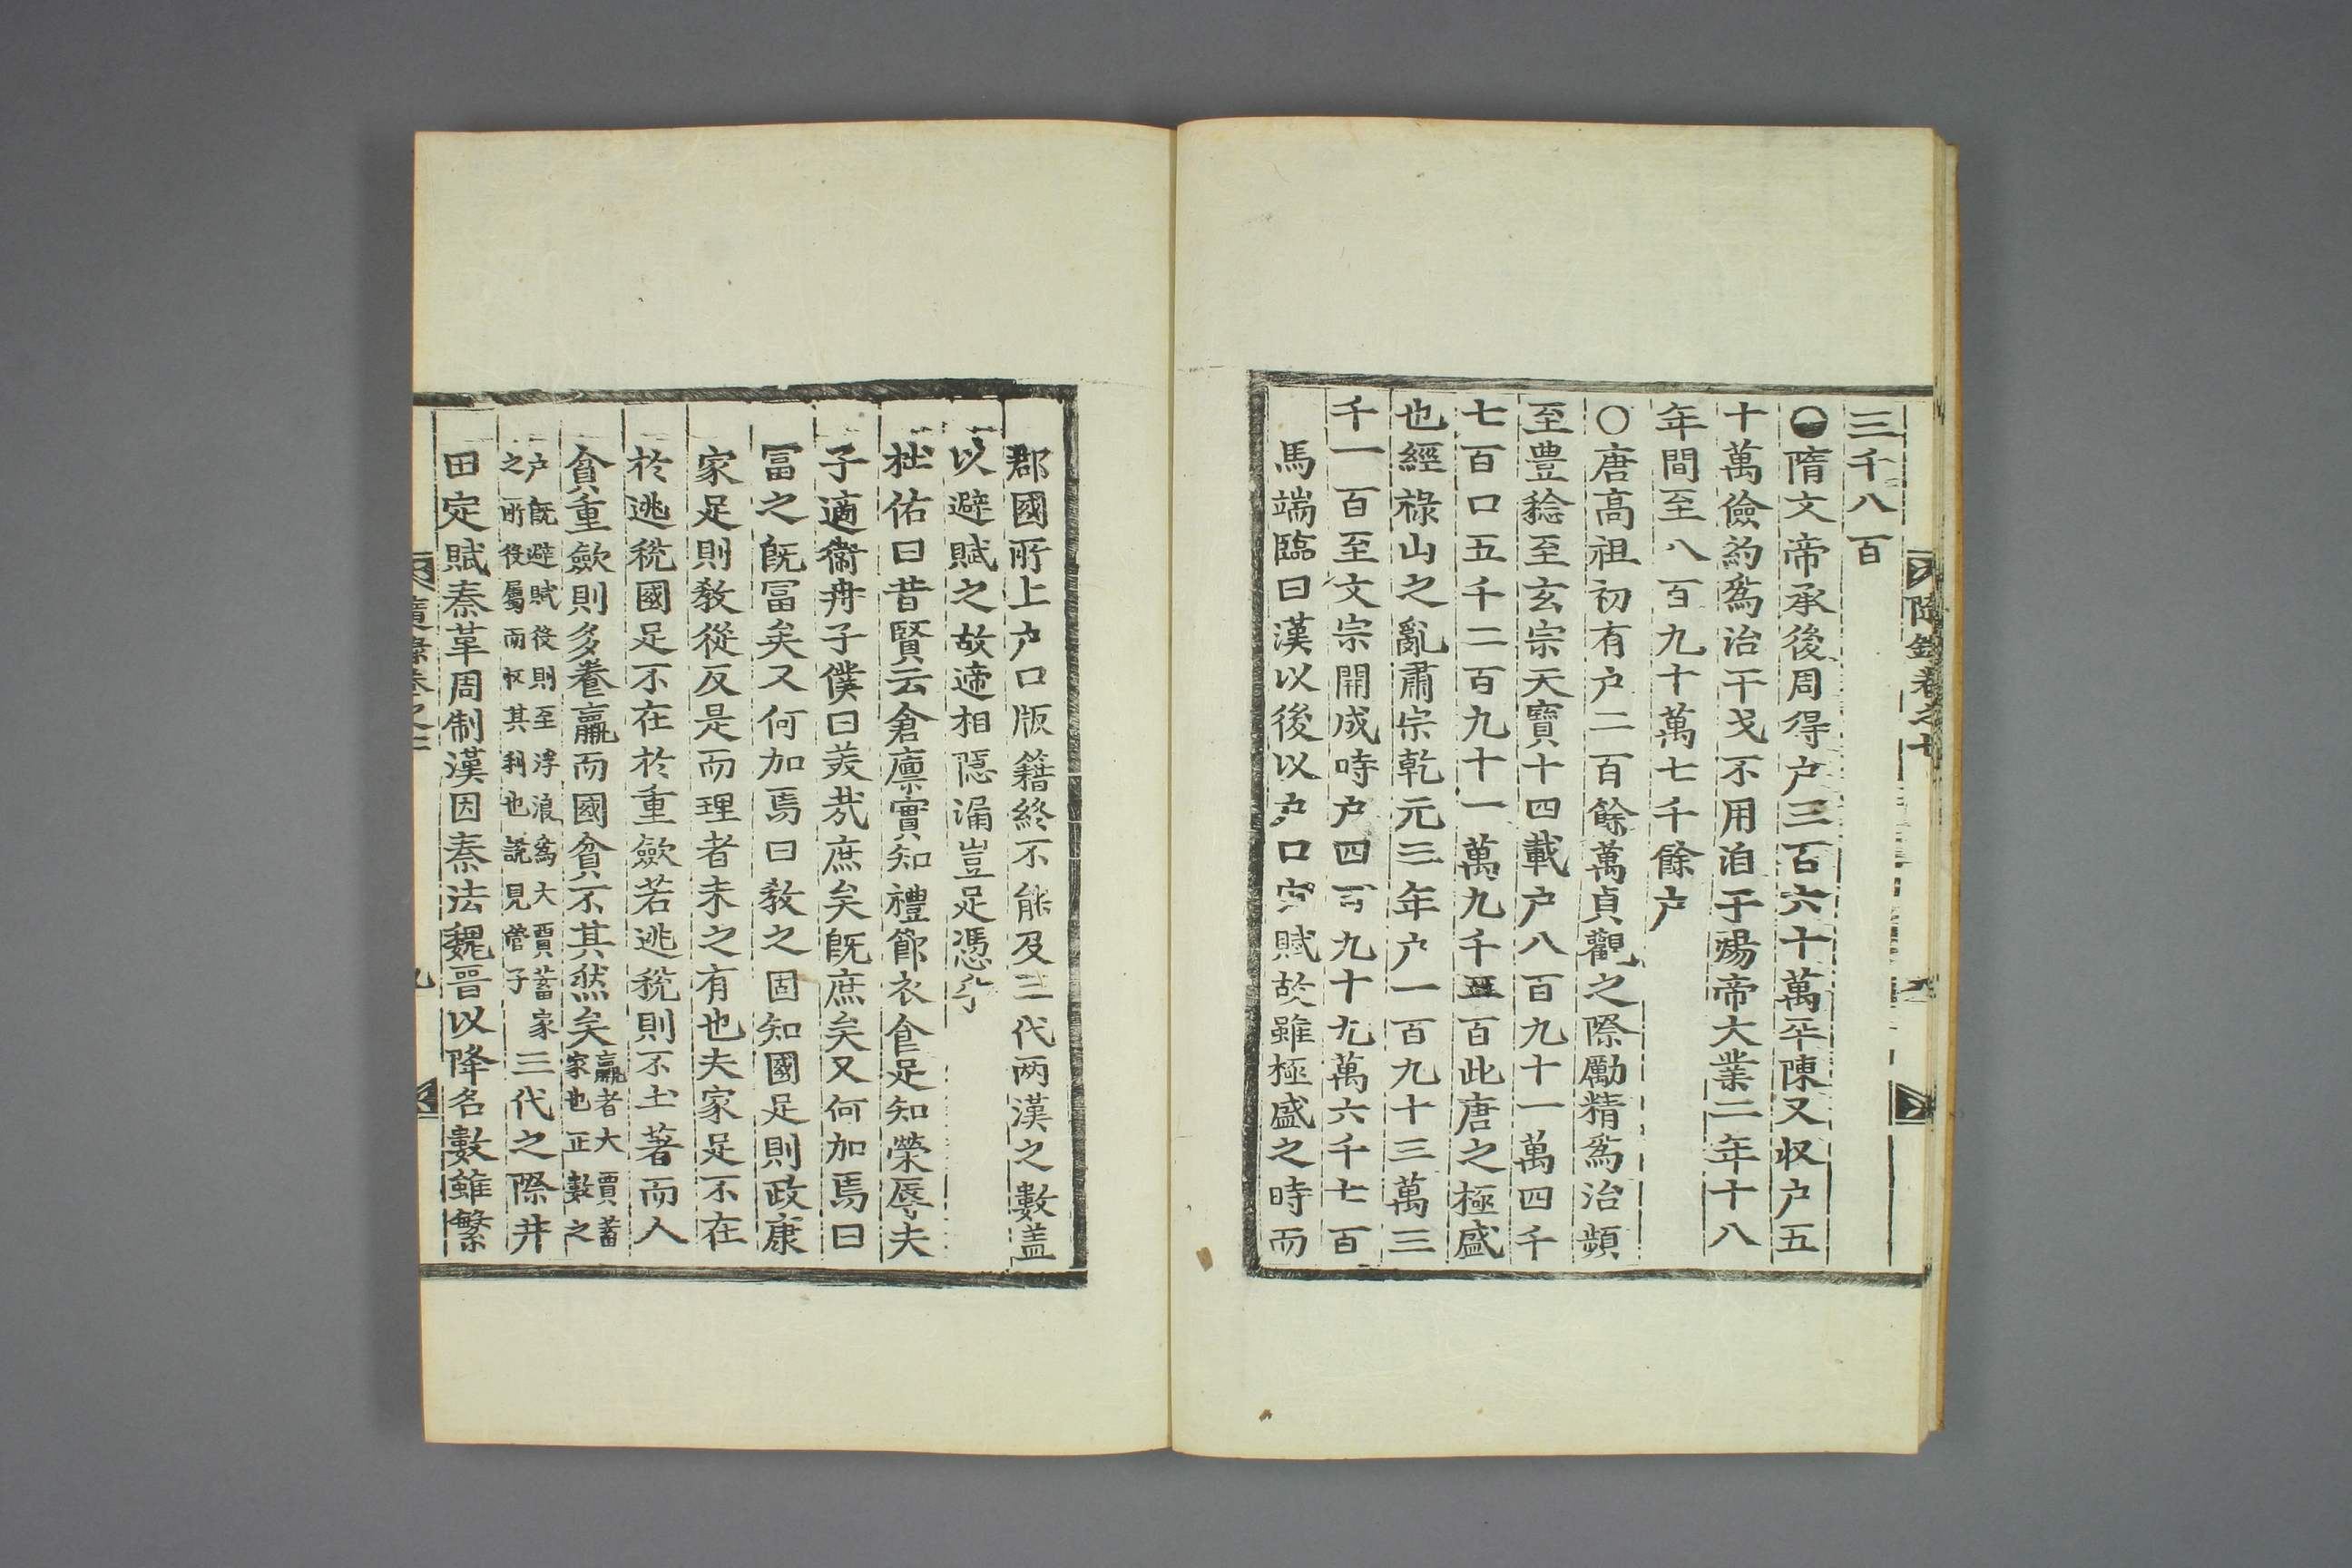 三千八百
隋文帝承後周得户三百六十萬平陳又収户五
十萬儉約爲治干戈不用洎于煬帝大業二年十八
年間至八百九十萬七千餘户
○唐高祖初有户二百餘萬貞觀之際勵精爲治頻
至豊稔至玄宗天寶十四載户八百九十一萬四千
七百口五千二百九十一萬九千五百此唐之極盛
也經祿山之亂肅宗乾元三年户一百九十三萬三
千一百至文宗開成時户四百九十九萬六千七百
馬端臨曰漢以後以户口定賦故雖極盛之時而
郡國所上户口版籍終不能及三代兩漢之數盖
以避賦之故遞相隱漏豈足憑乎
杜佑曰昔賢云倉廪實知禮節衣食足知榮辱夫
子適衞冉子僕曰美㦲庶矣旣庶矣又何加焉曰
冨之旣冨矣又何加焉曰敎之固知國足則政康
家足則敎從反是而理者未之有也夫家足不在
於逃税國足不在於重歛若逃税則不土著而人
貧重歛則多養羸而國貧不其然矣羸者大賈蓄家也正數之
户旣避賦役則至浮浪爲大賈蓄家之所役屬而収其利也説見管子三代之際井
田定賦秦革周制漢因秦法魏晋以降名數雖繁